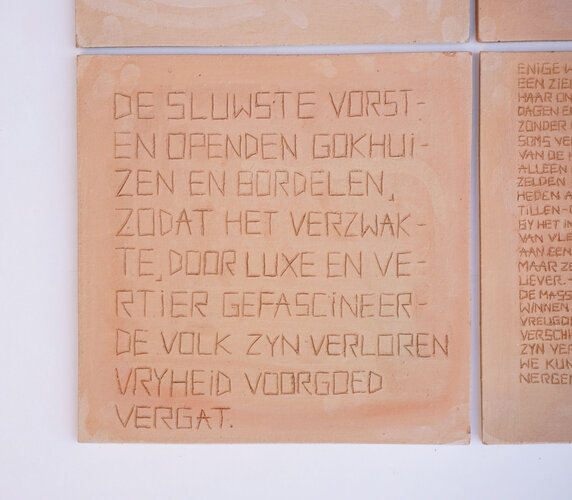 DE SLUWSTE VORST-
EN OPENDEN GOKHUI-
ZEN EN BORDELEN,
ZODAT HET VERZWAK-
TE, DOOR LUXE EN VE-
RTIER GEFASCINEER-
DE VOLK ZYN VERLOREN
VRYHEID VOORGOED
VERGAT.
ENIGE
EEN
HAAR
DAGEN
ZONDER
SOMS
VAN DE
ALLEEN
ZELDEN
HEDEN
TILLEN-
BY HET
VAN
AAN EEN
MAAR
LIEVER.-
DE
WINNEN
ZYN
WE